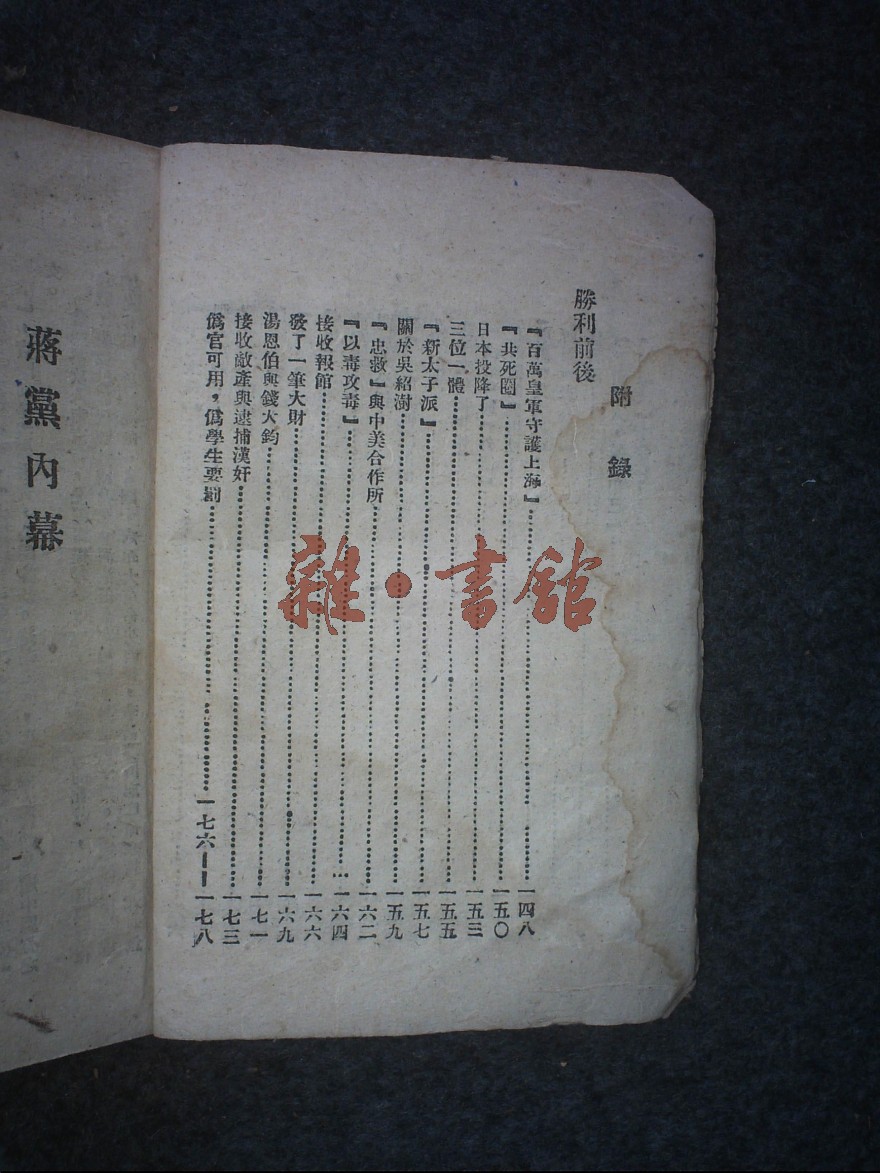 附錄
勝利前後
『百萬皇軍守護上海』……一四八
『共死圈』……一五〇
日本投降了……一五三
三位一體……一五五
『新太子派』……一五七
關於吳紹澍……一五九
『忠救』與中美合作所……一六二
『以毒攻毒』……一六四
接收報館……一六六
發了一筆大財……一六九
湯恩伯與錢大鈞……一七一
接收敵產與逮捕漢奸……一七三
僞官可用，僞學生要罰……一七六——一七八
蔣黨內幕
雜·書館